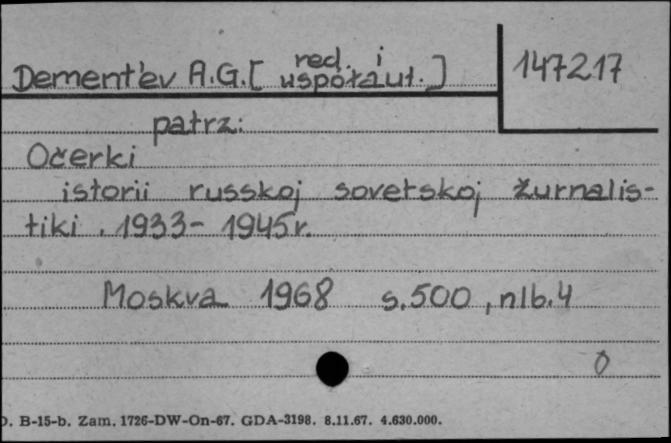 Dement'ev A.G. [red. i uspółaut.] 147217
patrz:
Očerki
istorii russkoj sovetskoj žurnalis-
tiki. 1933-1945r.
Moskva 1968 s.500, nlb.4
0
D. B-15-b. Zam. 1726-DW-On-67. GDA-3198. 8.11.67. 4.630.000.